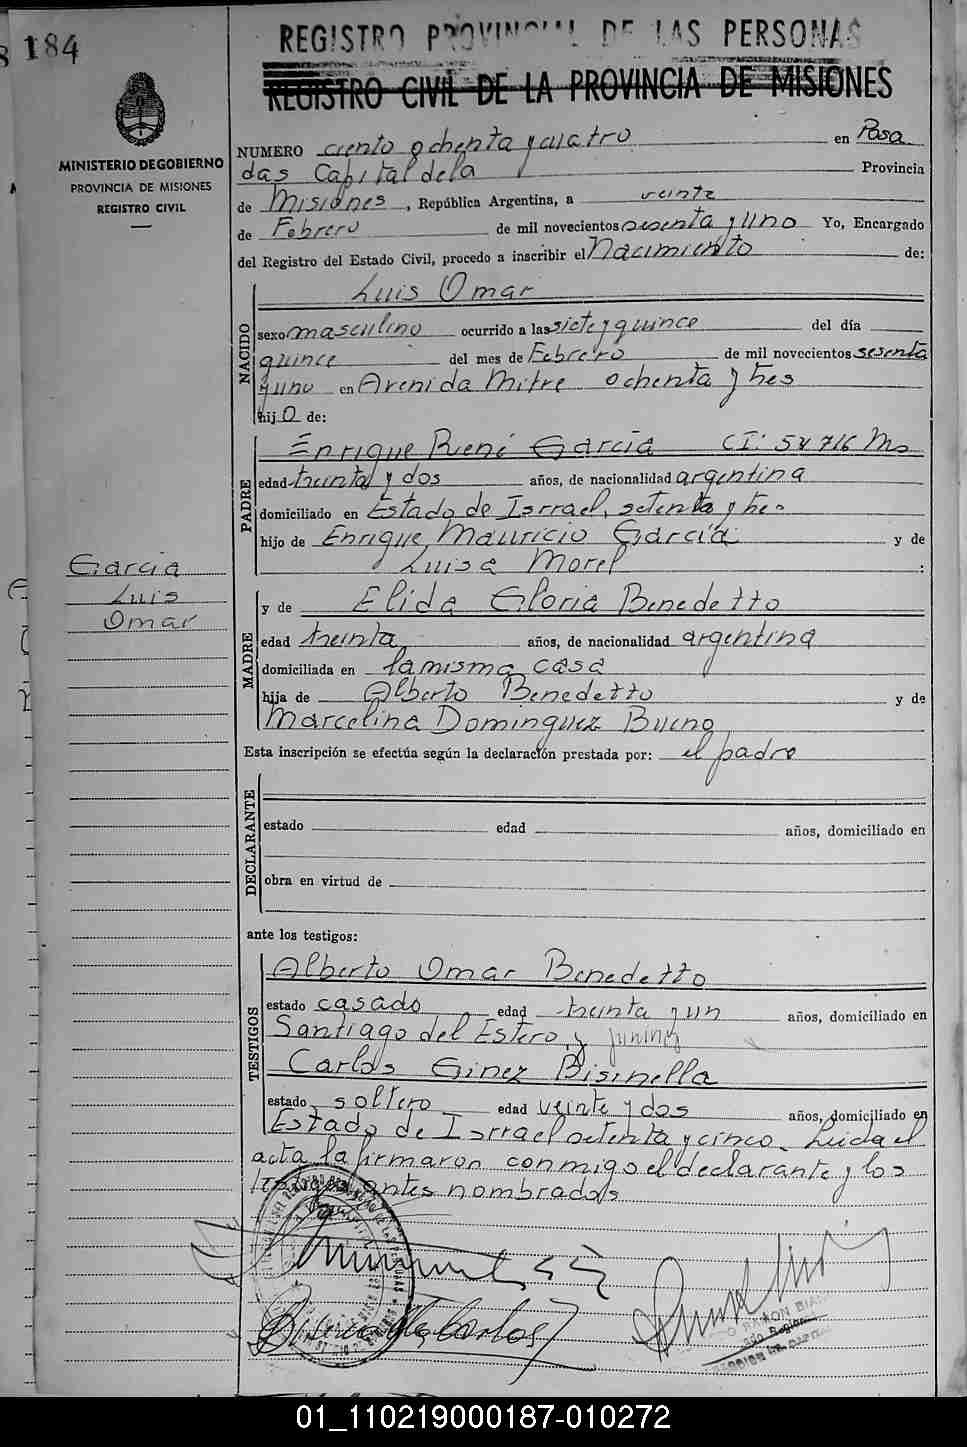 184
REGISTRO PROVINCIAL DE LAS PERSONAS
REGISTRO CIVIL DE LA PROVINCIA DE MISIONES
MINISTERIO DE GOBIERNO
PROVINCIA DE MISIONES
REGISTRO CIVIL
NUMERO ciento ochenta y cuatro en Posa
das Capital de la Provincia
de Misiones, República Argentina, a veinte
de Febrero de mil novecientos sesenta y uno Yo, Encargado
del Registro del Estado Civil, procedo a inscribir el Nacimiento de:
NACIDO
Luis Omar
sexo masculino ocurrido a las siete y quince del día
quince del mes de Febrero de mil novecientos sesenta
y uno en Avenida Mitre ochenta y tres
hijo de:
PADRE
Enrique René Garcia CI: 54716 Ms
edad treinta y dos años, de nacionalidad argentina
domiciliado en Estado de Isrrael, setenta y tres
hijo de Enrique Mauricio Garcia y de
Luisa Morel :
Garcia
Luis
Omar
MADRE
y de Elida Gloria Benedetto
edad treinta años, de nacionalidad argentina
domiciliada en la misma casa
hija de Alberto Benedetto y de
Marcelina Dominguez Bueno
Esta inscripción se efectúa según la declaración prestada por: el padre
DECLARANTE
estado edad años, domiciliado en
obra en virtud de
ante los testigos:
TESTIGOS
Alberto Omar Benedetto
estado casado edad treinta y un años, domiciliado en
Santiago del Estero, y Junin
Carlos Ginez Bisinella
estado soltero edad veinte y dos años, domiciliado en
Estado de Isrrael setenta y cinco. Leida el
acta la firmaron conmigo el declarante y los
antes nombrados
Bisinella Carlos G
RAMON
01_110219000187-010272